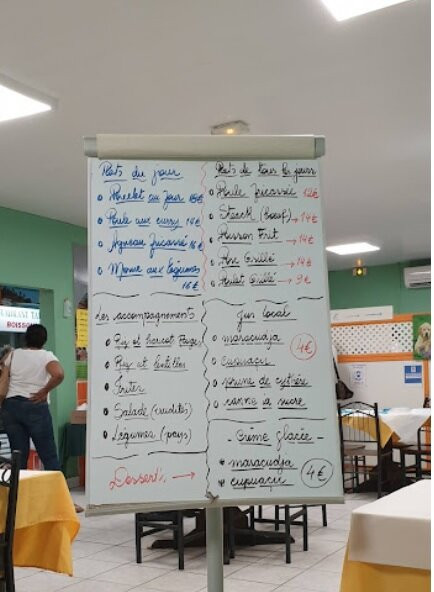 Plats du jour
Porcelet au four
Poule aux curry 14€
Agneau fricassé 16€
Morue aux légumes
16€
Les accompagnements
Riz et haricot Rouges
Riz et lentilles
Frites
Salade (crudités)
Légumes (pays)
Dessert →
Plats de tous les jours
Poule fricassée 12€
Steack (boeuf) → 14€
Poisson Frit → 14€
Pon Grillé → 14€
Poulet Grillé → 9€
Jus local
maracudja
4€
cupuaçu
prune de cythère
canne à sucre
- Crème glacée -
maracudja
cupuaçu
4€
BOISSON